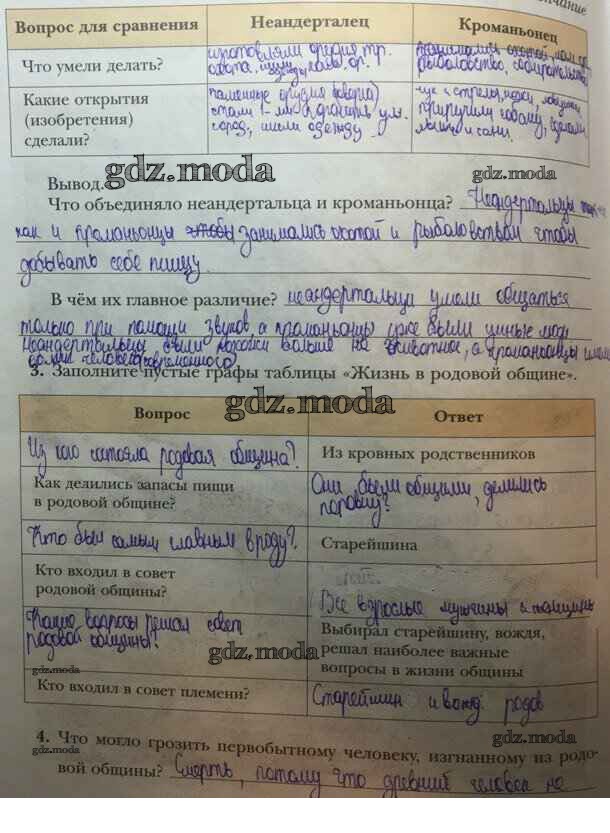 Вопрос для сравнения Неандерталец Кроманьонец
Что умели делать? изготовляли орудия тр. охота,
рыболовство, собирательство
Какие открытия (изобретения) сделали? каменные орудия
стали
город, имели одежду
приручили собаку, сделали
gdz.moda
gdz.moda
Вывод.
Что объединяло неандертальца и кроманьонца? Неандертальцы
как и кроманьонцы чтобы занимались охотой и рыболовством чтобы
добывать себе пищу.
В чём их главное различие? неандертальцы умели общаться
только при помощи звуков, а кроманьонцы уже были умные люди
неандертальцы были похожи больше на животное, а кроманьонцы
человека современного
3. Заполните пустые графы таблицы «Жизнь в родовой общине».
gdz.moda
Вопрос Ответ
Из кого состояла родовая община? Из кровных родственников
Как делились запасы пищи в родовой общине? Они были общими, делились поровну?
Кто был самым главным в роду? Старейшина
Кто входил в совет родовой общины? Все взрослые мужчины и женщины
Какие вопросы решал совет родовой общины? Выбирал старейшину, вождя,
решал наиболее важные
вопросы в жизни общины
gdz.moda
gdz.moda
Кто входил в совет племени? Старейшин и вожд. родов
4. Что могло грозить первобытному человеку, изгнанному из родо-
gdz.moda
вой общины? Смерть, потому что древний человек не